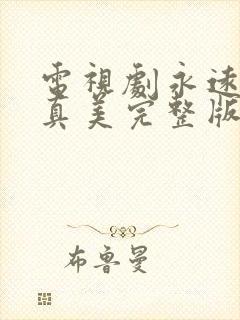 電視劇永遠
真美完整版
布魯曼